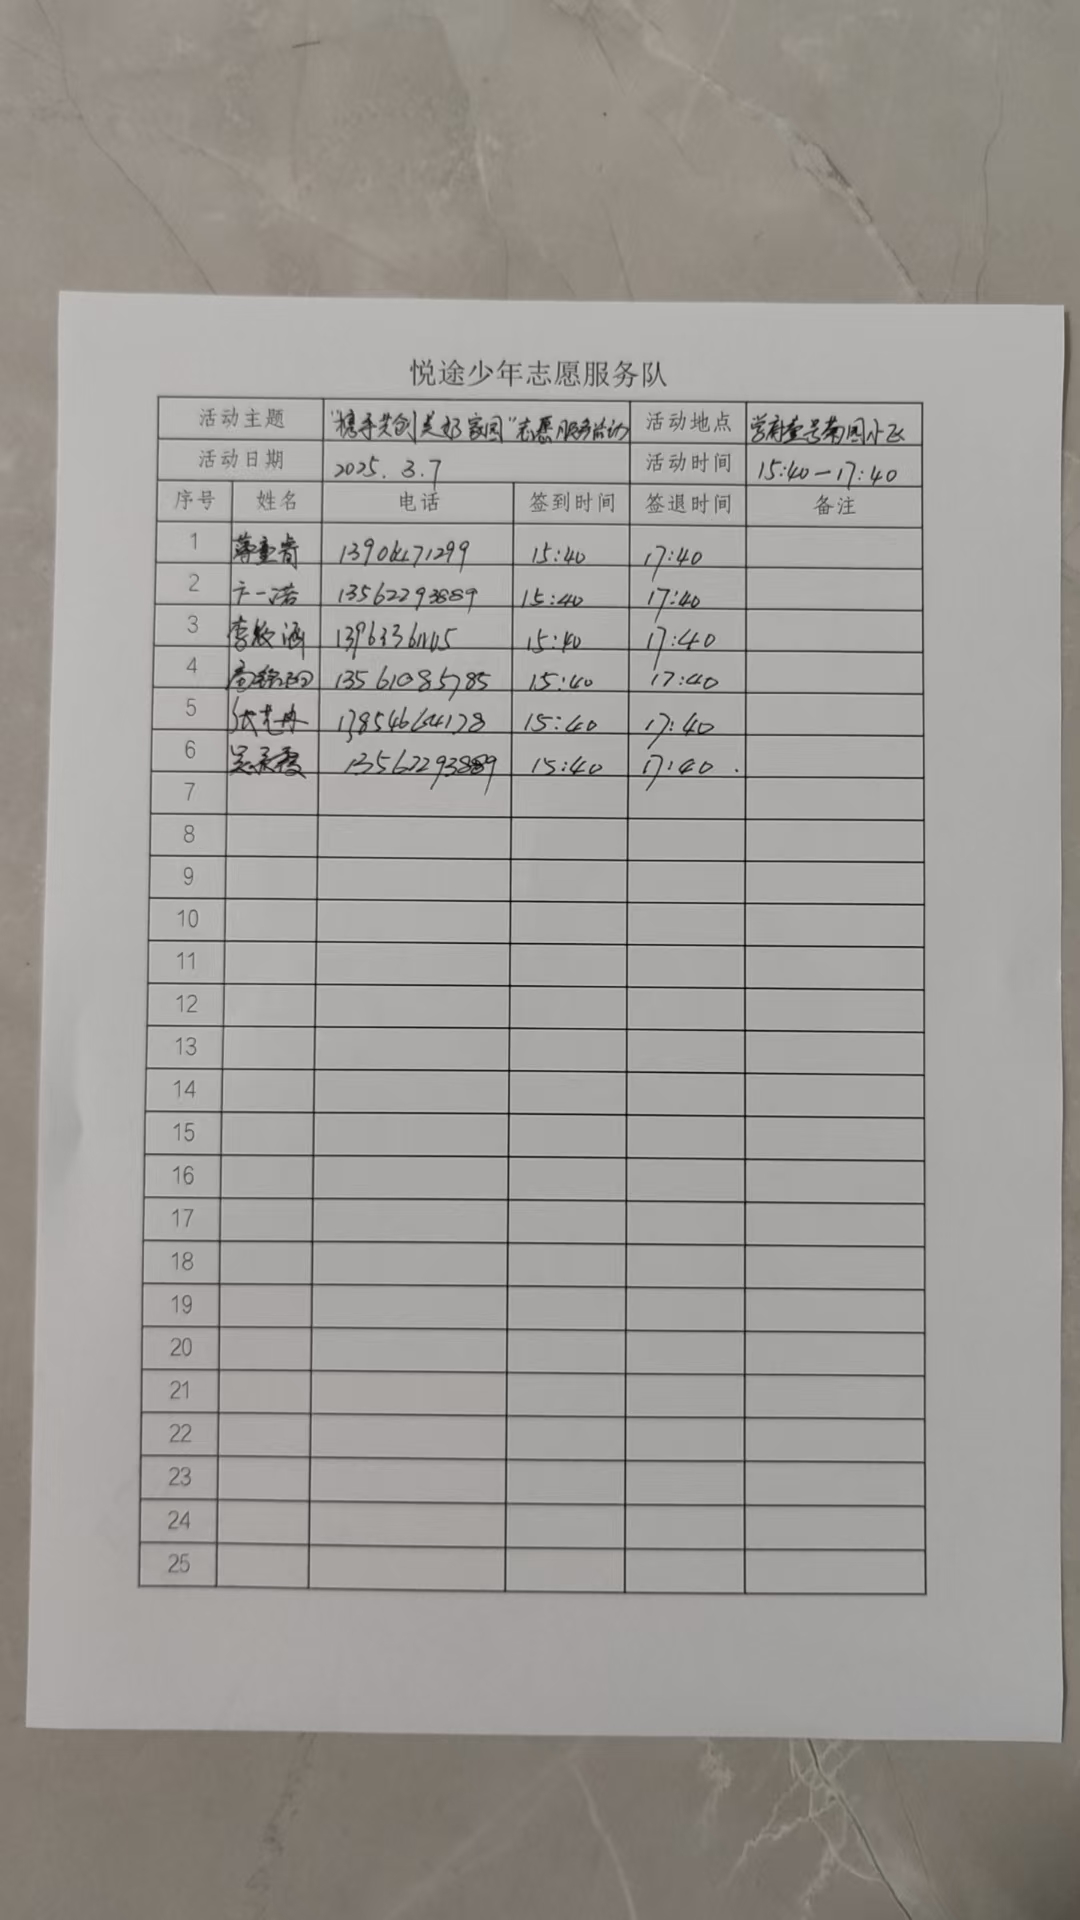 悦途少年志愿服务队
活动主题 "携手共创美好家园"志愿服务活动 活动地点 学府壹号南园小区
活动日期 2025.3.7 活动时间 15:40—17:40
序号 姓名 电话 签到时间 签退时间 备注
1 15:40 17:40
2 卞一诺 13562293889 15:40 17:40
3 李牧涵 15:40 17:40
4 13561085785 15:40 17:40
5 17854664178 15:40 17:40
6 13562293889 15:40 17:40
7
8
9
10
11
12
13
14
15
16
17
18
19
20
21
22
23
24
25